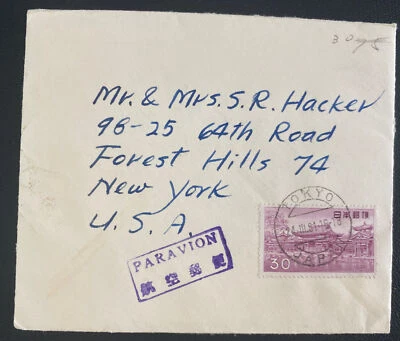 30
Mr. & Mrs. S. R. Hacker
98-25 64th Road
Forest Hills 74
New York
U. S. A.
TOKYO
JAPAN
日本郵便
30
PAR AVION
航空郵便